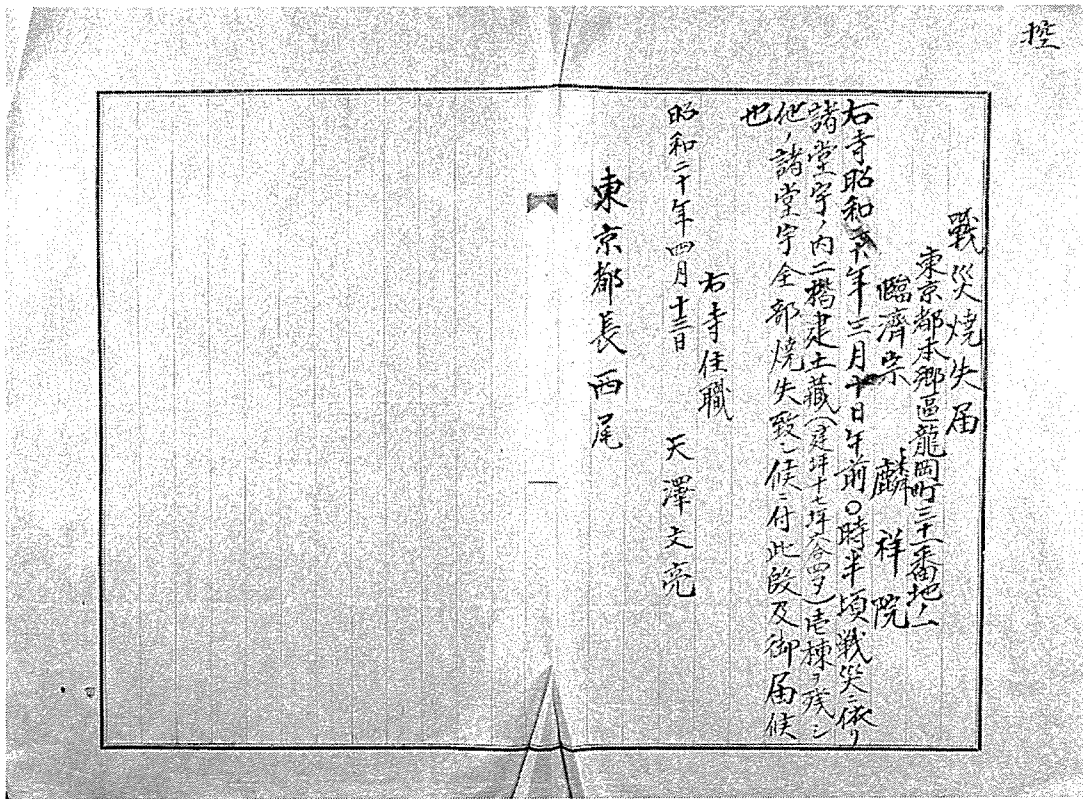 控
戰災燒失届
東京都本郷區龍岡町三十一番地ノ一
臨濟宗 麟祥院
右寺昭和二十年三月十日午前〇時半頃戰災ニ依リ
諸堂宇ノ内二階建土藏(建坪十七坪六合四夕)壱棟ヲ残シ
他ノ諸堂宇全部燒失致シ候ニ付此段及御届候
也
右寺住職
昭和二十年四月十三日 天澤文亮
東京都長西尾